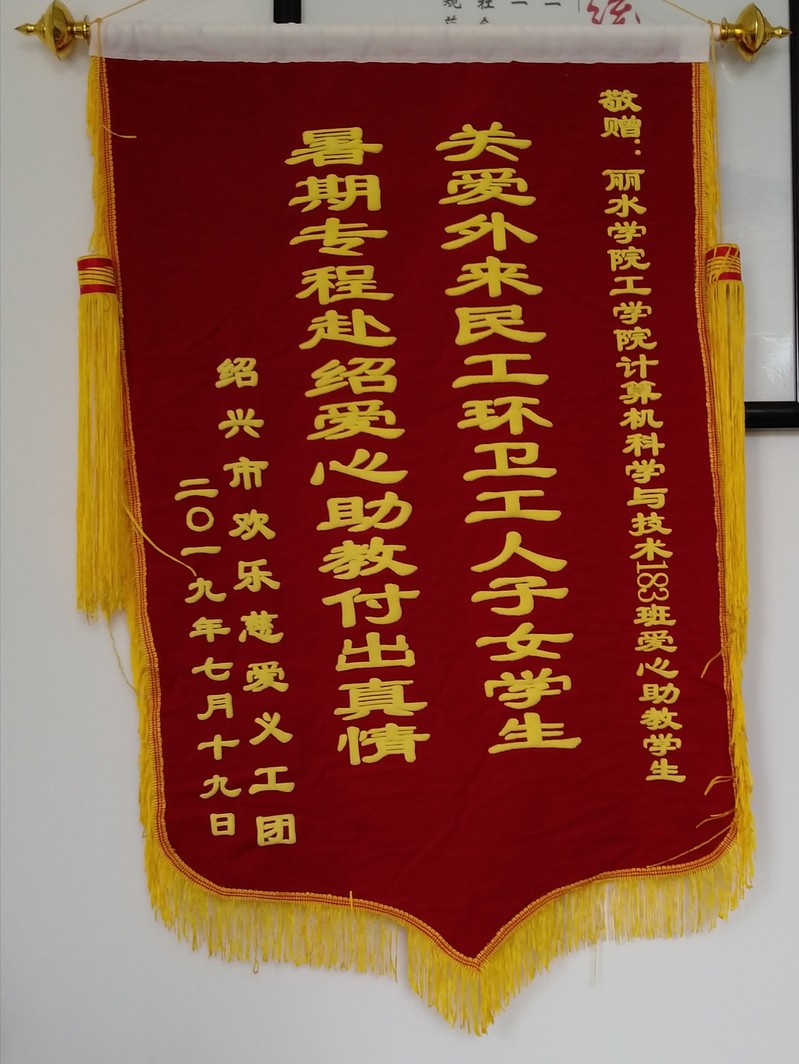 敬赠：丽水学院工学院计算机科学与技术183班爱心助教学生
关爱外来民工环卫工人子女学生
暑期专程赴绍爱心助教付出真情
绍兴市欢乐慈爱义工团
二〇一九年七月十九日